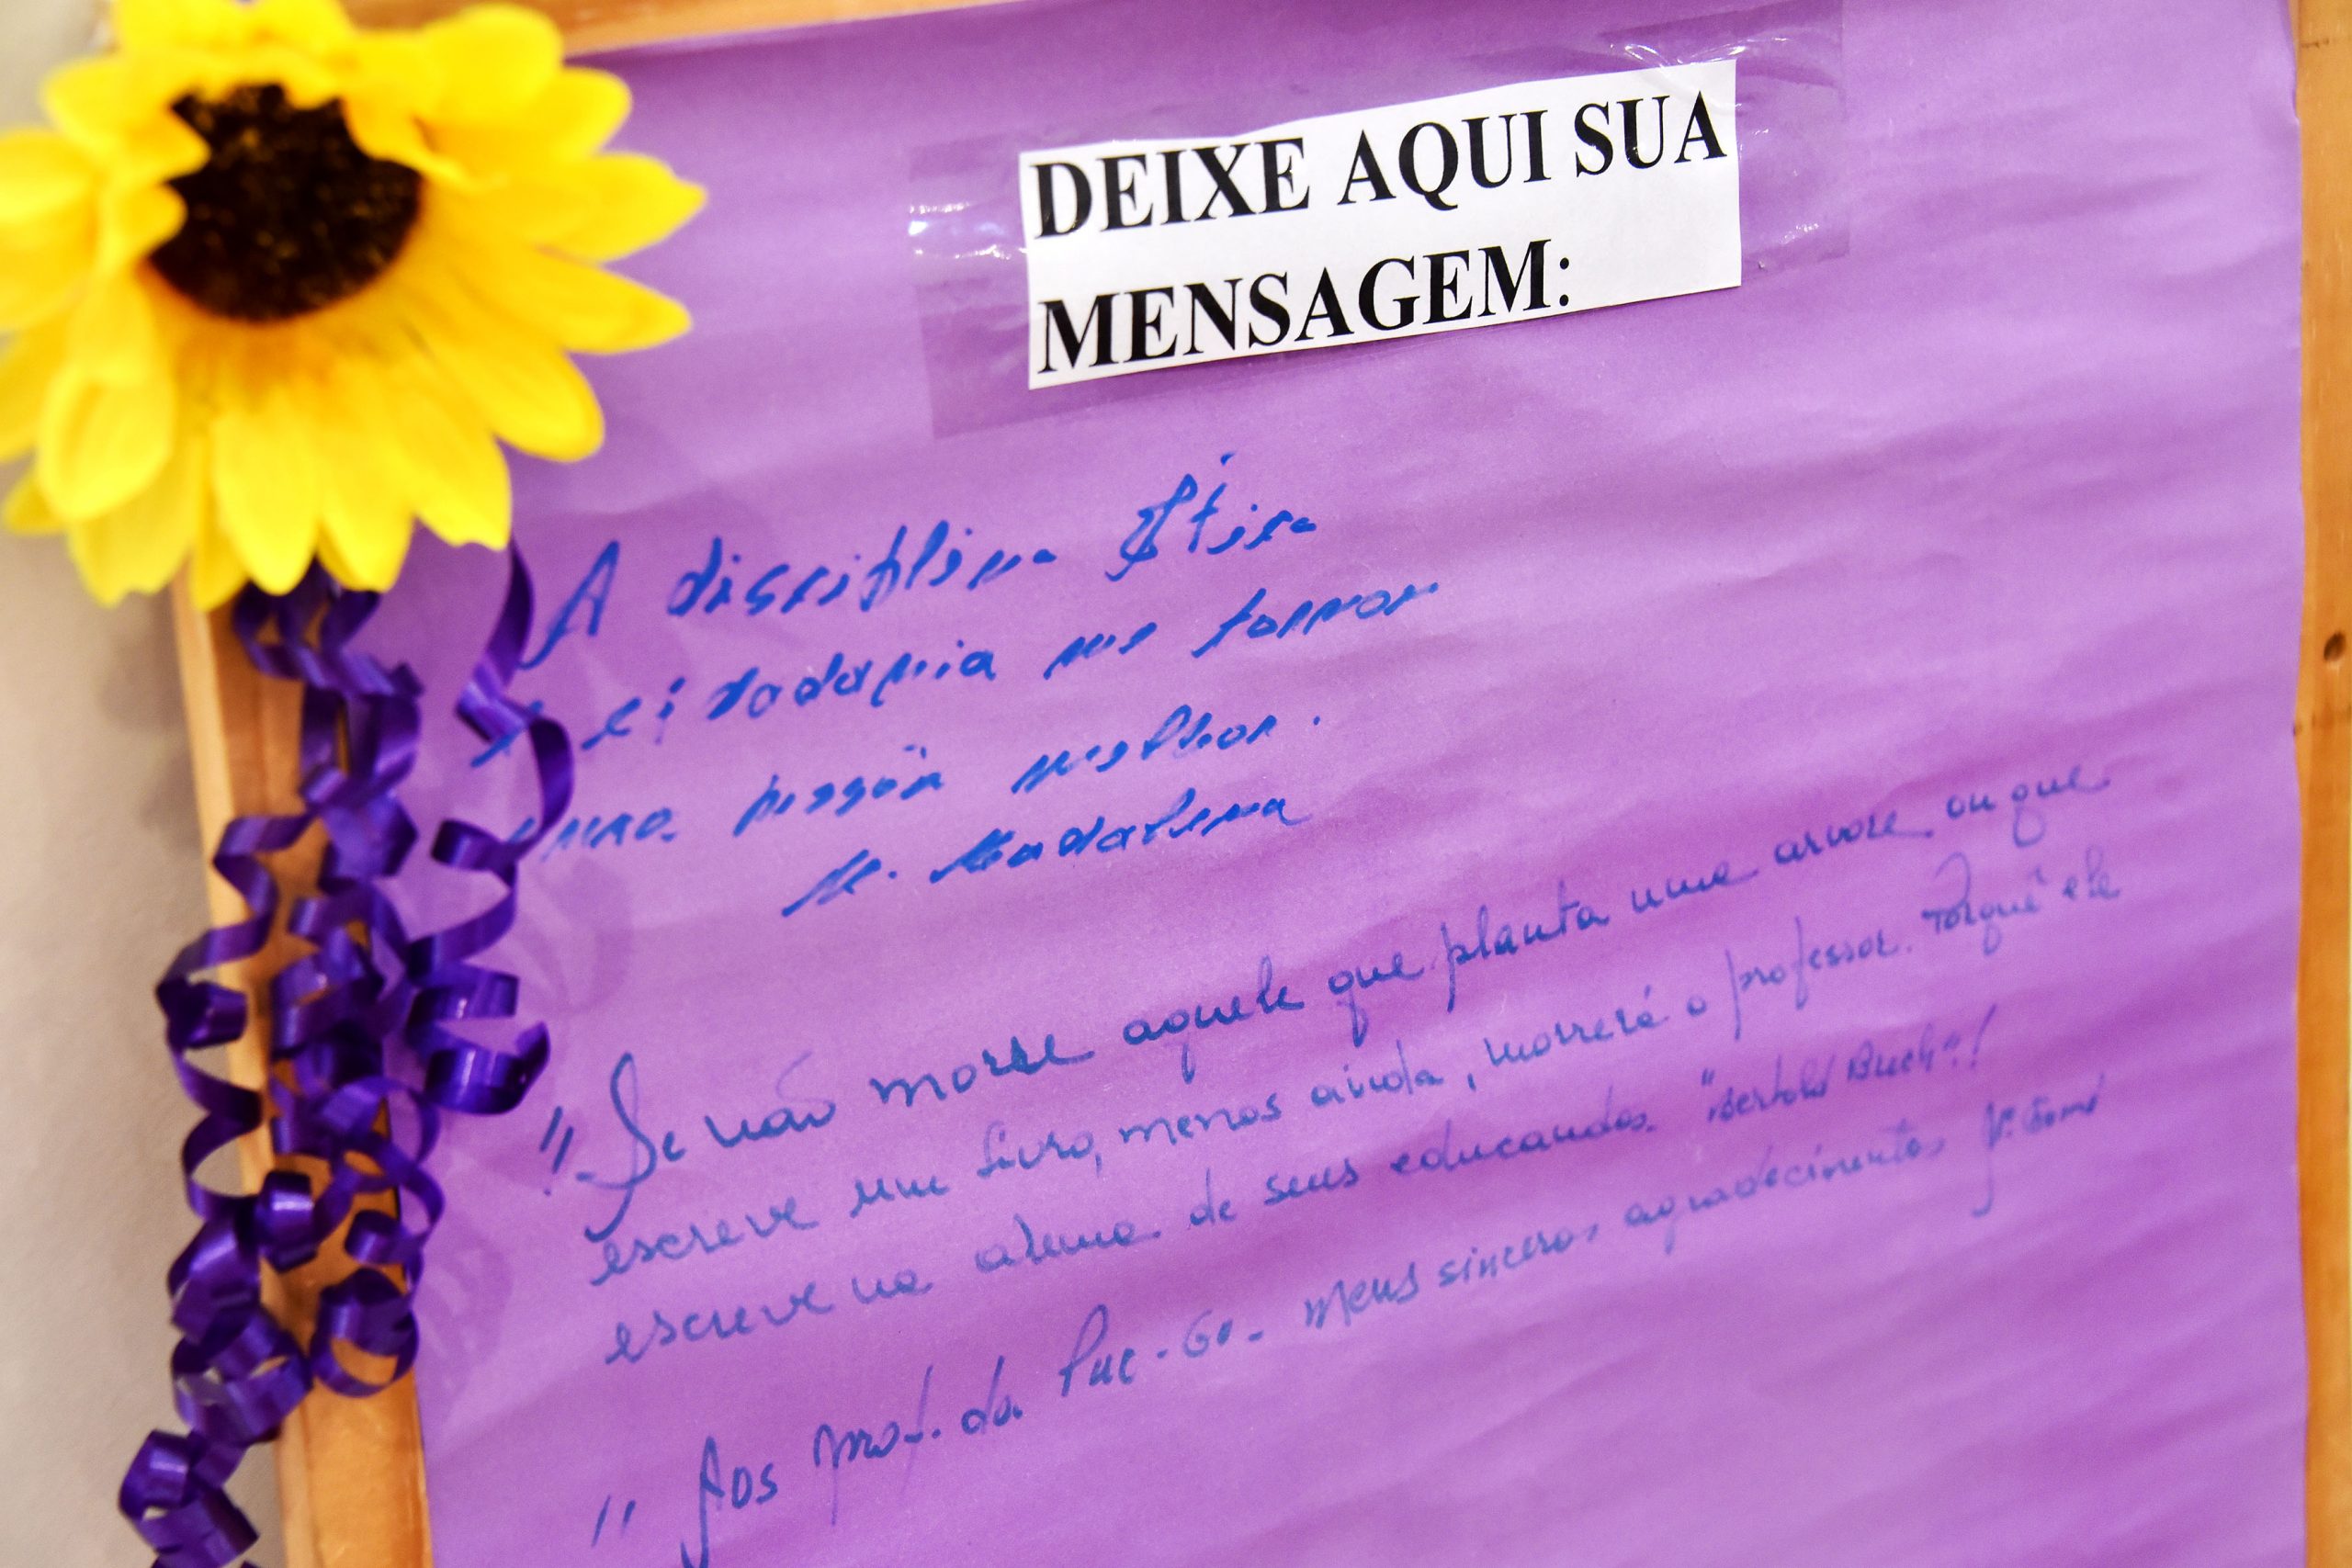 DEIXE AQUI SUA
MENSAGEM:
A disciplina Ética
e cidadania me tornou
uma pessoa melhor.
M. Madalena
"Se não morre aquele que planta uma arvore ou que
escreve um livro, menos ainda, morrerá o professor. Porquê ele
escreve na alma de seus educandos. "Bertold Brech"!
" Aos prof. da Puc-Go. Meus sinceros agradecimentos